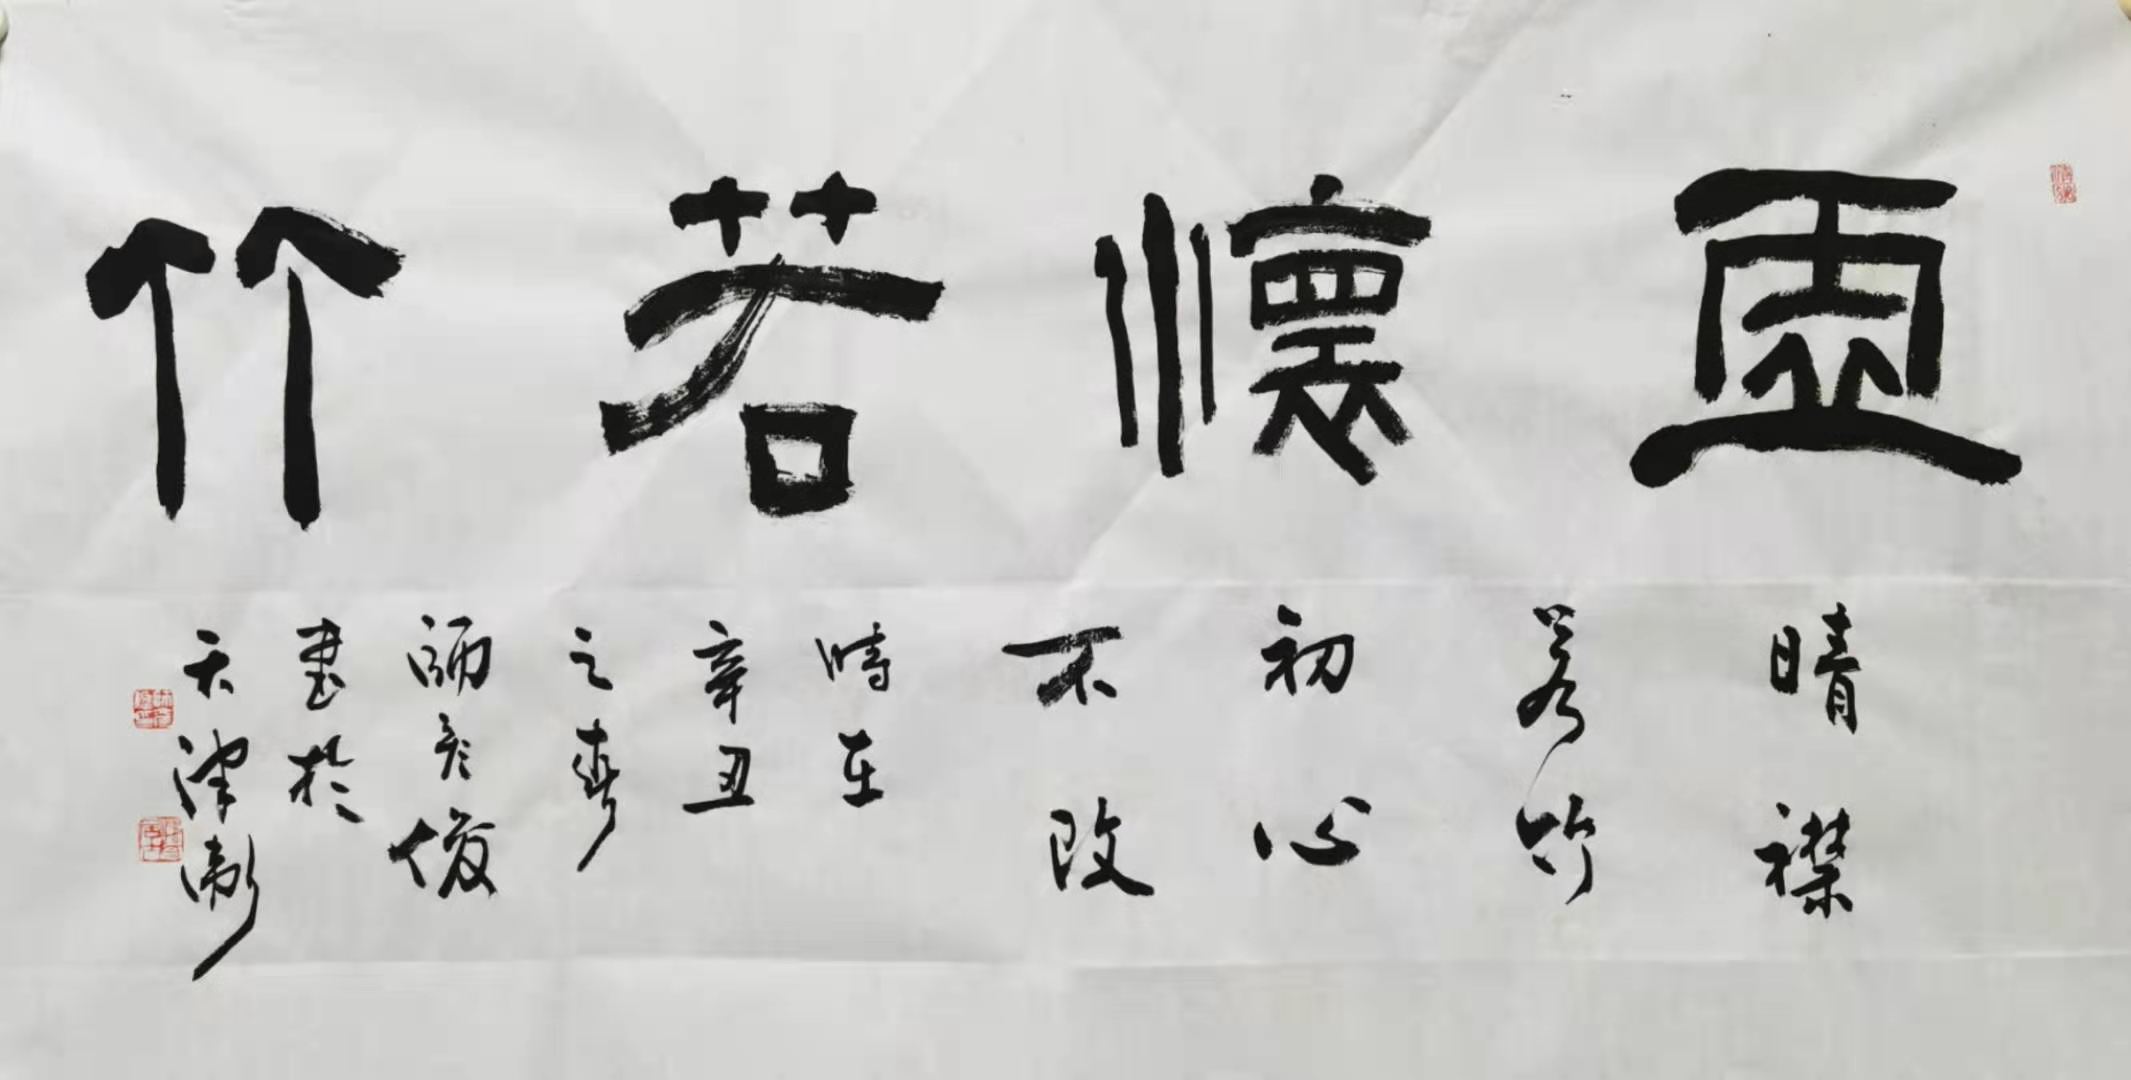 虛懷若竹
晴襟
若竹
初心
不改
時在
辛丑
之春
師彦俊
書於
天津衛